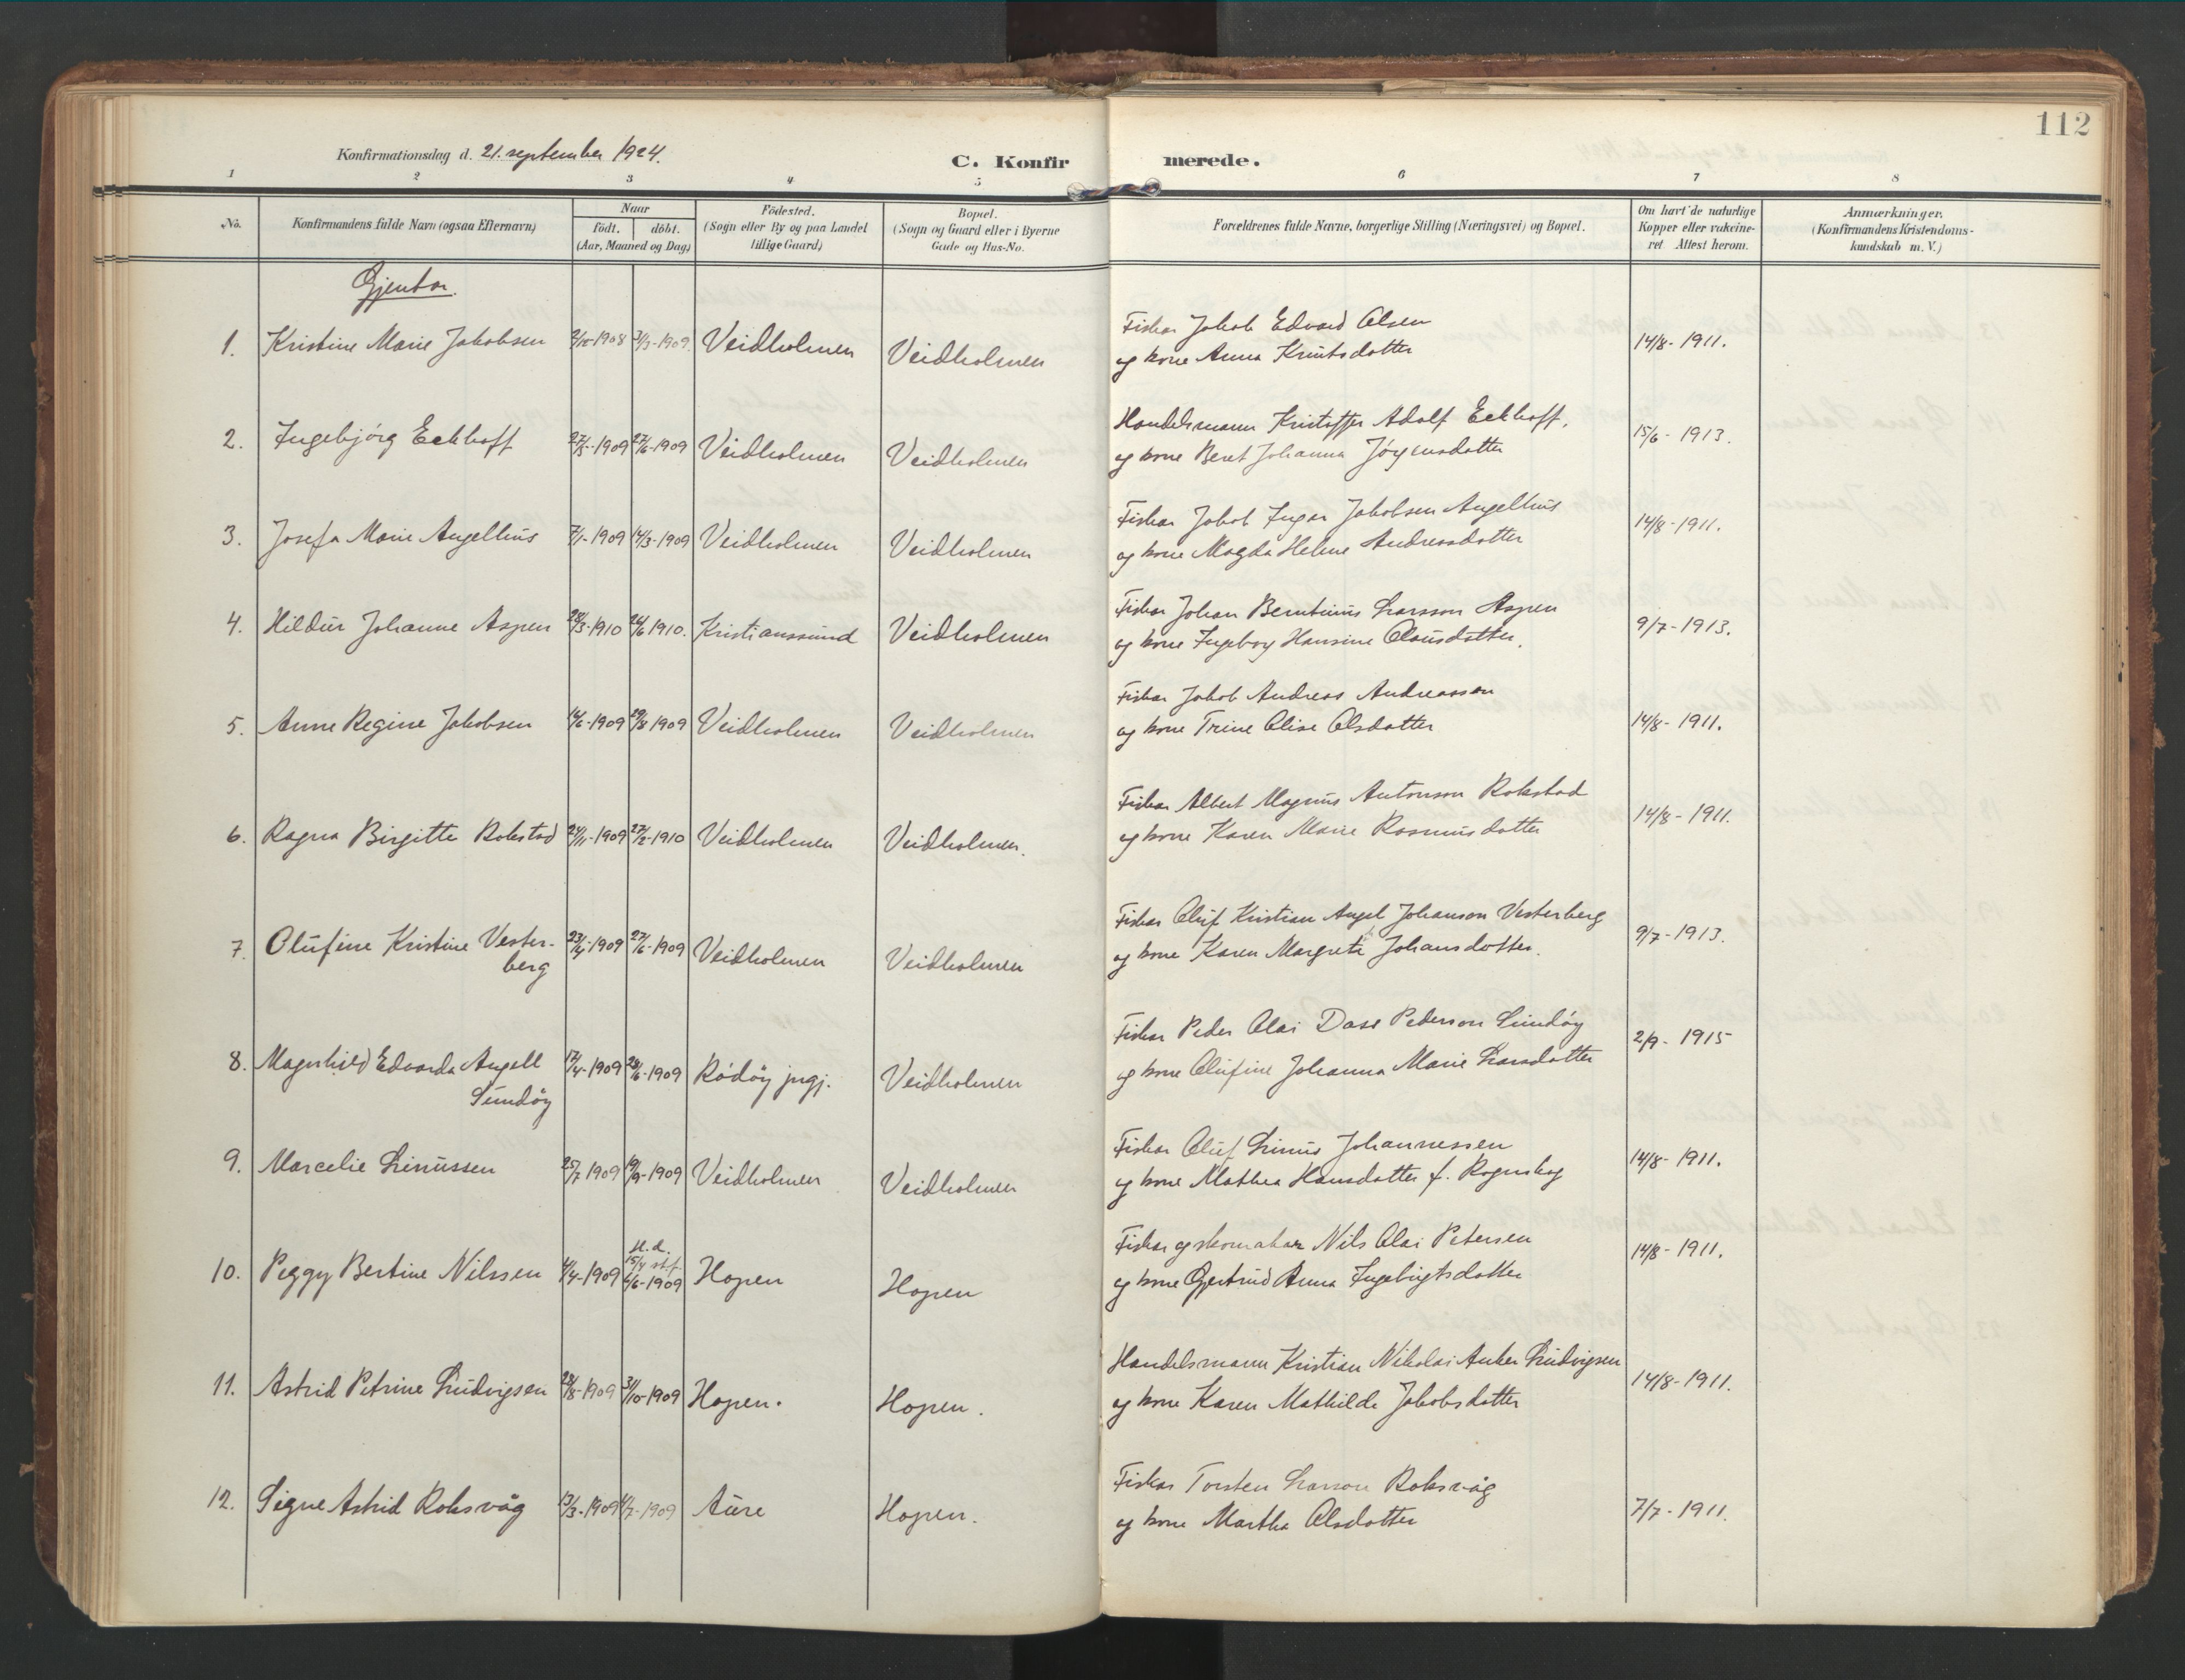 112
Konfirmationsdag d. 21. september 1924.
C. Konfirmerede.
1 2 3 4 5 6 7 8
No.
Konfirmandens fulde Navn (ogsaa Efternavn)
Naar
födt. döbt.
(Aar, Maaned og Dag)
Födested.
(Sogn eller By og paa Landet
tillige Gaard)
Bopæl.
(Sogn og Gaard eller i Byerne
Gade og Hus-No.
Forældrenes fulde Navne, borgerlige Stilling (Næringsvei) og Bopæl.
Om havt de naturlige
Kopper eller vakcine-
ret Attest herom.
Anmærkninger.
(Konfirmandens Kristendoms-
kundskab m. V.)
Gjentor.
1. Kristine Marie Jakobsen 2/10-1908 31/3-1909 Veidholmen Veidholmen
Fiskar Jakob Edvard Olsen
og kone Anna Knutsdotter
14/8-1911.
2. Ingebjörg Eckhoff 27/5-1909 27/6-1909 Veidholmen Veidholmen
Handelsmann Kristoffer Adolf Eckhoff,
og kone Beret Johanna Jörgensdotter
15/6-1913.
3. Josefa Marie Angellhus 7/1-1909 14/3-1909 Veidholmen Veidholmen
Fiskar Jakob Ingar Jakobsen Angellhus
og kone Magda Helene Andreasdotter
14/8-1911.
4. Hildur Johanne Aspen 28/3-1910 26/6 1910. Kristianssund Veidholmen
Fiskar Johan Berntinus Larsson Aspen
og kone Ingeborg Hansine Olausdotter.
9/7-1913.
5. Anne Regine Jakobsen 14/6-1909 29/8 1909 Veidholmen Veidholmen
Fiskar Jakob Andreas Andreassen
og kone Trine Elise Olsdotter
14/8-1911.
6. Ragna Birgitte Rokstad 24/11-1909 27/2-1910 Veidholmen Veidholmen.
Fiskar Albert Magnus Antonson Rokstad
og kone Karen Marie Rasmusdotter
14/8-1911.
7. Olufine Kristine Vester-
berg 23/4-1909 27/6-1909 Veidholmen Veidholmen
Fiskar Oluf Kristian Angel Johanson Vesterberg
og kone Karen Margrete Johansdotter.
9/7-1913.
8. Magnhild Edvarda Angell
Sundöy 17/4-1909 28/6-1909 Rödöy prgj. Veidholmen
Fiskar Peder Olai Dass Pederson Sundöy
og kone Olufine Johanna Marie Larsdotter
2/9-1915
9. Marcelie Linussen 25/7 1909 19/9-1909 Veidholmen Veidholmen
Fiskar Oluf Linus Johannessen
og kone Mathea Hansdotter f. Rognskog
14/8-1911.
10. Peggy Bertine Nilssen 4/4-1909 H.d. 15/4 st.f. 6/6-1909 Hopen Hopen
Fiskar og skomakar Nils Olai Petersen
og kone Gjertrud Anna Ingebrigtsdotter
14/8-1911.
11. Astrid Petrine Ludvigsen 28/8-1909 31/10-1909 Hopen. Hopen.
Handelsmann Kristian Nikolai Anker Ludvigsen
og kone Karen Mathilde Jakobsdotter
14/8-1911.
12. Signe Astrid Roksvåg 13/3-1909 4/7-1909 Aure Hopen.
Fiskar Torsten Larson Roksvåg
og kone Martha Olsdotter
7/7-1911.